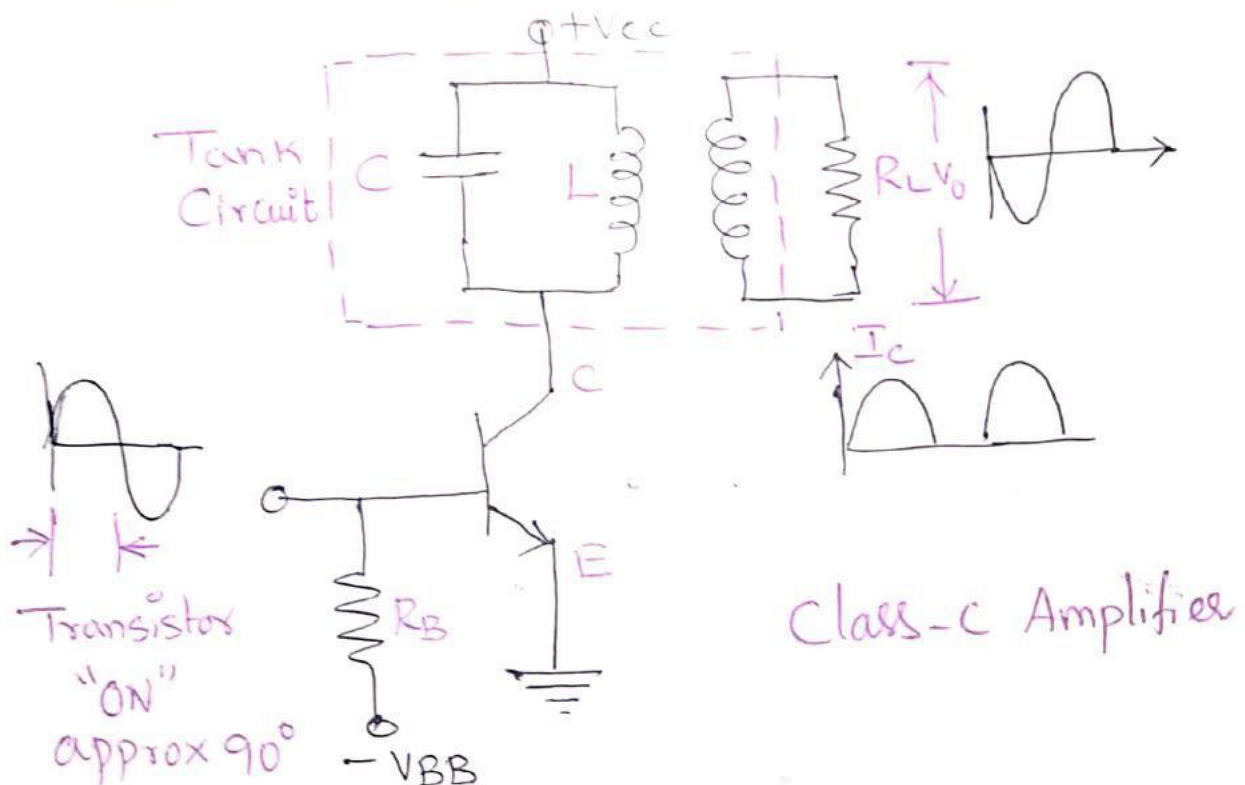 +Vcc
Tank
Circuit
C
L
RL
Vo
Ic
C
E
RB
Transistor
"ON"
approx 90°
- VBB
Class-C Amplifier